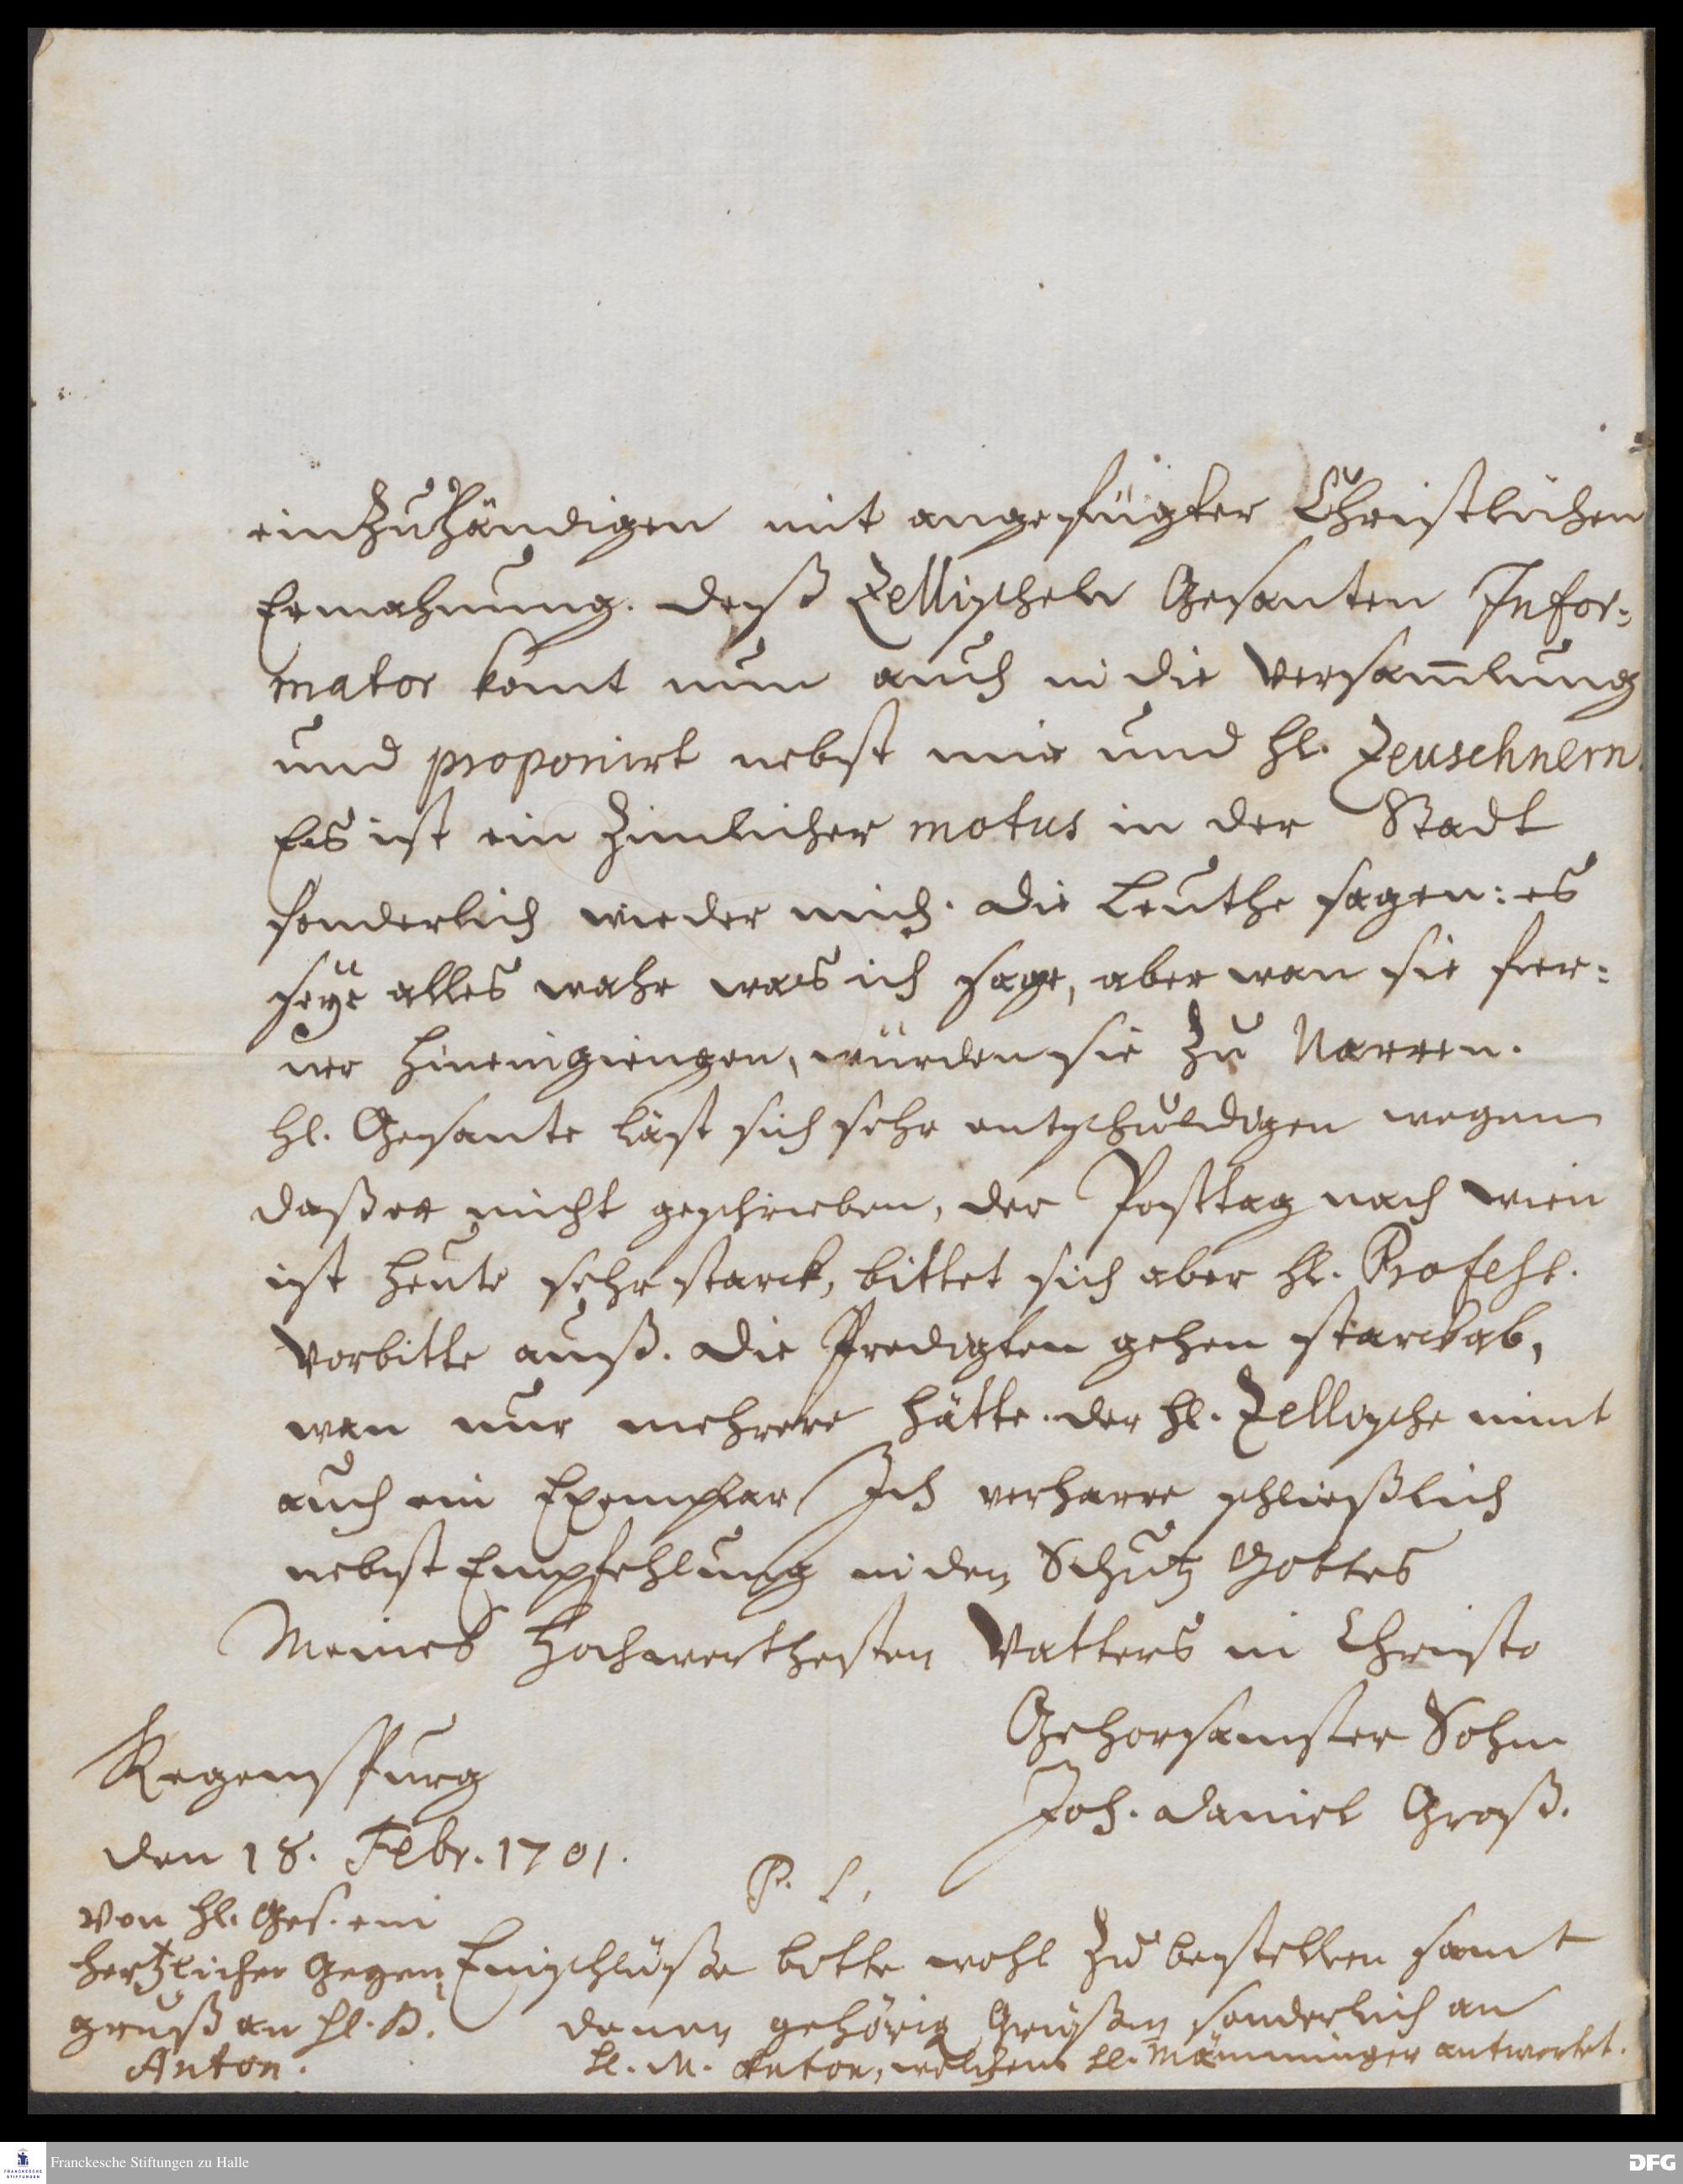 einzuhändigen mit angefügter Christlichen
Ermahnung. deß Zellischen Gesanten Infor=
mator komt nun auch in die Versam̅lung
und proponirt nebst mir und hl. Zeuschnern.
Es ist ein zimlicher motus in der Stadt
sonderlich wieder mich. die Leuthe sagen: es
seÿe alles wahr was ich sage, aber wan sie fer=
ner hineingiengen, würden sie zu Narren.
hl. Gesante läst sich sehr entschuldigen wegen
daß er nicht geschrieben, der Posttag nach wien
ist heute sehr starck, bittet sich aber hl. Profess.
Vorbitte auß. die Predigten gehen starck ab,
wan nur mehrere hätte. der hl. Zellische nimt
auch ein Exemplar Ich verharre schließlich
nebst Empfehlung in den Schutz Gottes
Meines Hochwerthesten Vatters in Christo
Gehorsamster Sohn
Joh. Daniel Groß.
Regenspurg
den 18. Febr. 1701.
P. S.
Einschlüße bitte wohl zu bestellen samt
denen gehörig Grüßen sonderlich an
hl. M. Anton, welchem hl. Mämminger antwortet.
Von hl. Ges. ein
hertzlicher Gegen
gruß an hl. B.
Anton.
Franckesche Stiftungen zu Halle
DFG